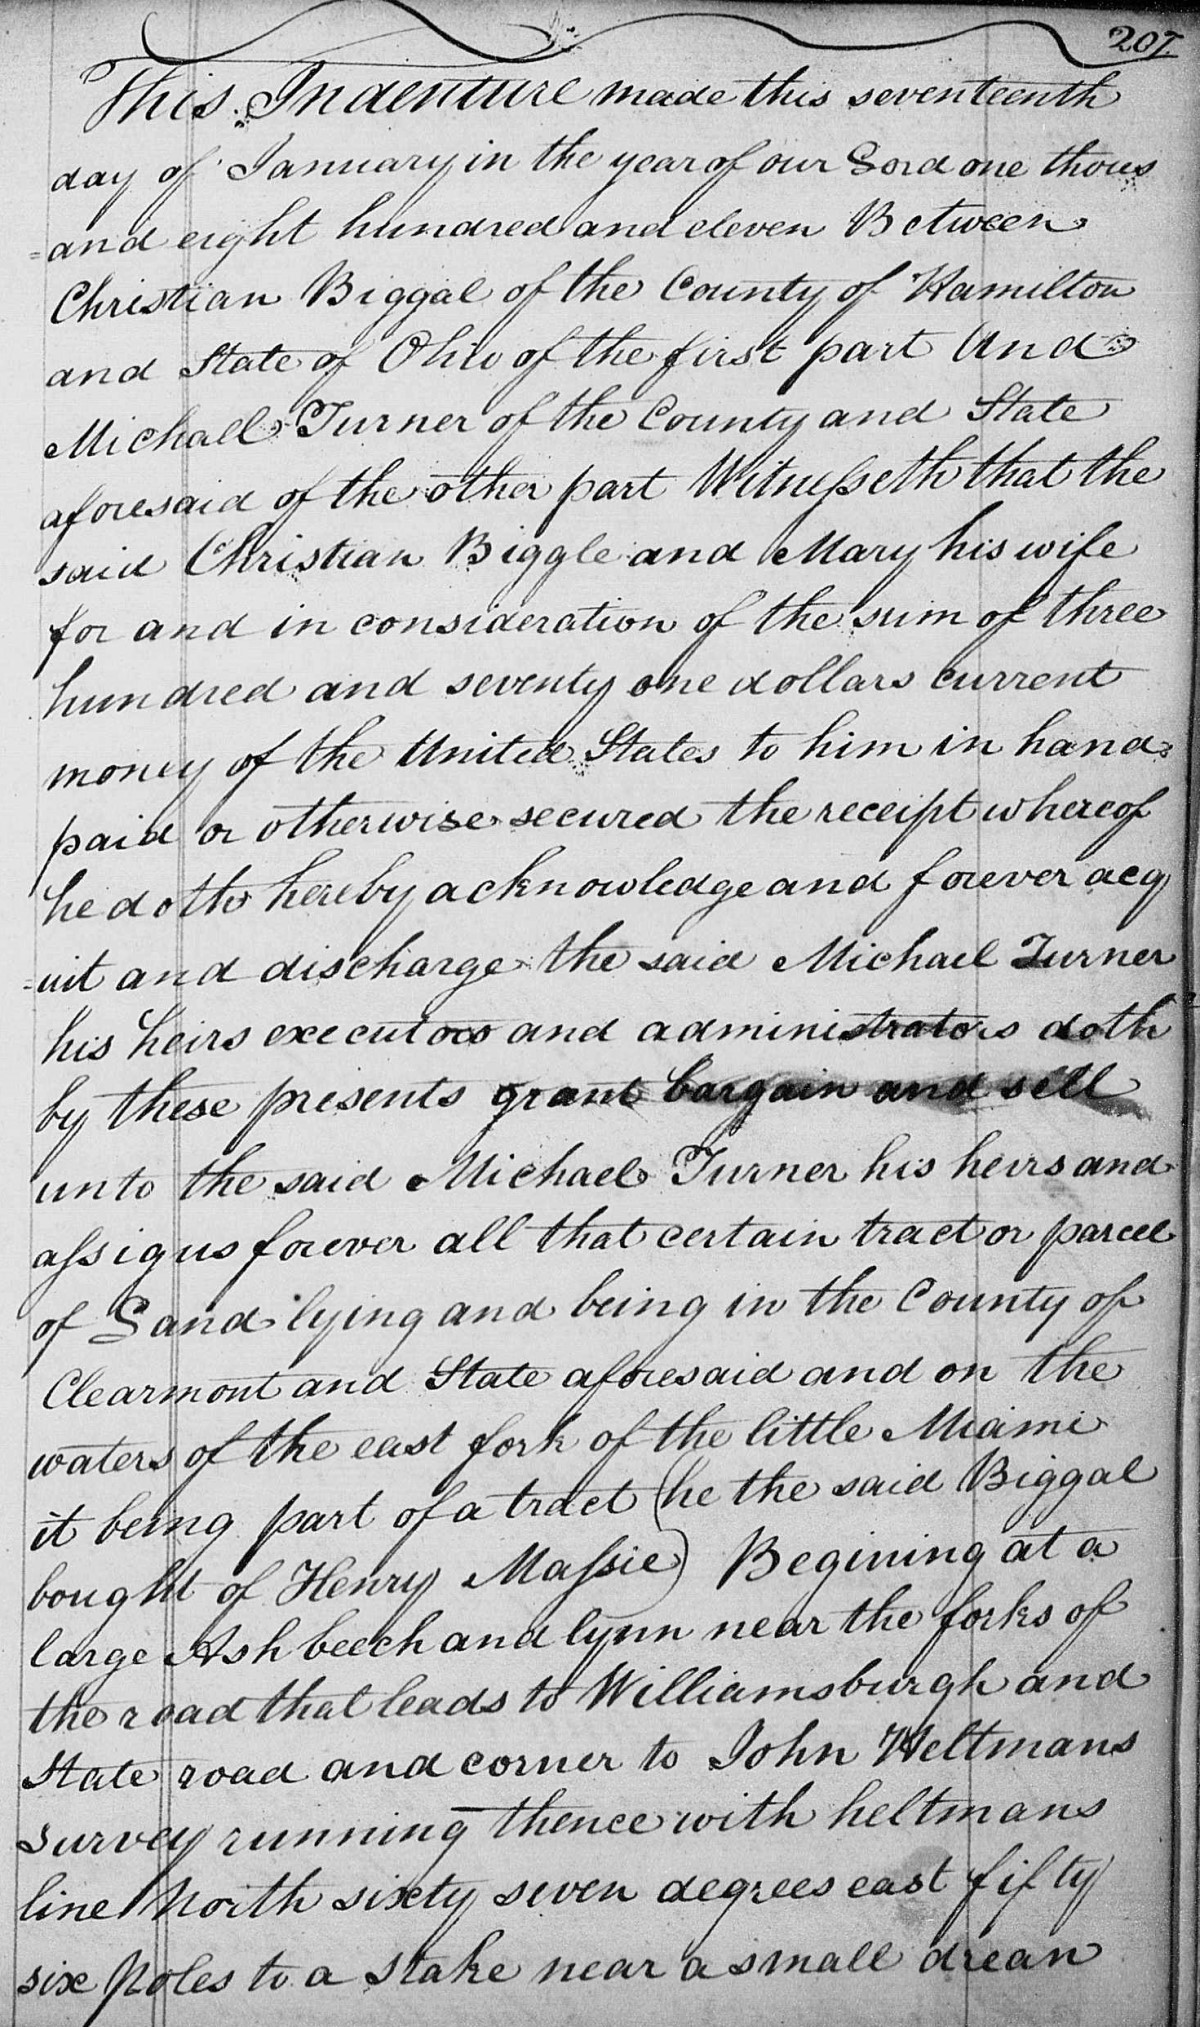 207.
This Indenture made this seventeenth
day of January in the year of our Lord one thous
=and eight hundred and eleven Between
Christian Biggal of the County of Hamilton
and State of Ohio of the first part And
Michall Turner of the County and State
aforesaid of the other part Witnesseth that the
said Christian Biggle and Mary his wife
for and in consideration of the sum of three
hundred and seventy one dollars current
money of the United States to him in hand
paid or otherwise secured the receipt whereof
he doth hereby acknowledge and forever acq
=uit and discharge the said Michael Turner
his heirs executors and administrators doth
by these presents grant bargain and sell
unto the said Michael Turner his heirs and
assigns forever all that certain tract or parcel
of Land lying and being in the County of
Clearmont and State aforesaid and on the
waters of the east fork of the little Miami
it being part of a tract (he the said Biggal
bought of Henry Massie) Begining at a
large Ash beech and lynn near the forks of
the road that leads to Williamsburgh and
State road and corner to John Heltmans
survey running thence with heltmans
line North sixty seven degrees east fifty
six poles to a stake near a small drean